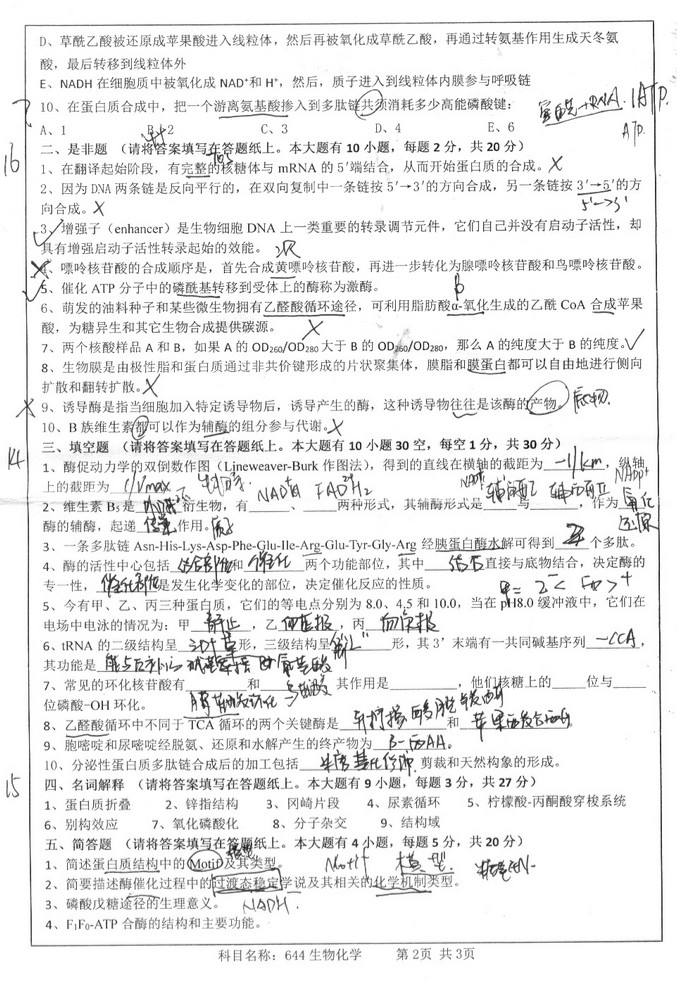 D、草酰乙酸被还原成苹果酸进入线粒体，然后再被氧化成草酰乙酸，再通过转氨基作用生成天冬氨
酸，最后转移到线粒体外
E、NADH 在细胞质中被氧化成 NAD⁺和 H⁺，然后，质子进入到线粒体内膜参与呼吸链
10、在蛋白质合成中，把一个游离氨基酸掺入到多肽链共须消耗多少高能磷酸键：
A、1 B、2 C、3 D、4 E、6 ATP.
16
二、是非题 （请将答案填写在答题纸上。本大题有 10 小题，每题 2 分，共 20 分）
1、在翻译起始阶段，有完整的核糖体与 mRNA 的 5′端结合，从而开始蛋白质的合成。X
2、因为 DNA 两条链是反向平行的，在双向复制中一条链按 5′→3′的方向合成，另一条链按 3′→5′的方
向合成。X 5'→3'
3、增强子（enhancer）是生物细胞 DNA 上一类重要的转录调节元件，它们自己并没有启动子活性，却
具有增强启动子活性转录起始的效能。
4、嘌呤核苷酸的合成顺序是，首先合成黄嘌呤核苷酸，再进一步转化为腺嘌呤核苷酸和鸟嘌呤核苷酸。
5、催化 ATP 分子中的磷酰基转移到受体上的酶称为激酶。 β
6、萌发的油料种子和某些微生物拥有乙醛酸循环途径，可利用脂肪酸α-氧化生成的乙酰 CoA 合成苹果
酸，为糖异生和其它生物合成提供碳源。 X
7、两个核酸样品 A 和 B，如果 A 的 OD₂₆₀/OD₂₈₀ 大于 B 的 OD₂₆₀/OD₂₈₀，那么 A 的纯度大于 B 的纯度。√
8、生物膜是由极性脂和蛋白质通过非共价键形成的片状聚集体，膜脂和膜蛋白都可以自由地进行侧向
扩散和翻转扩散。X
9、诱导酶是指当细胞加入特定诱导物后，诱导产生的酶，这种诱导物往往是该酶的产物。 底物.
10、B 族维生素都可以作为辅酶的组分参与代谢。X
14
三、填空题 （请将答案填写在答题纸上。本大题有 10 小题 30 空，每空 1 分，共 30 分）
1、酶促动力学的双倒数作图（Lineweaver-Burk 作图法），得到的直线在横轴的截距为 -1/km，纵轴
上的截距为 1/Vmax
2、维生素 B₅是 衍生物，有 、 两种形式，其辅酶形式是 与 ，作为 氧化
还原 酶的辅酶，起递 作用。
3、一条多肽链 Asn-His-Lys-Asp-Phe-Glu-Ile-Arg-Glu-Tyr-Gly-Arg 经胰蛋白酶水解可得到 个多肽。
4、酶的活性中心包括 结合部位 和 催化 两个功能部位，其中 结合 直接与底物结合，决定酶的
专一性， 催化部位 是发生化学变化的部位，决定催化反应的性质。
5、今有甲、乙、丙三种蛋白质，它们的等电点分别为 8.0、4.5 和 10.0，当在 pH8.0 缓冲液中，它们在
电场中电泳的情况为：甲 静止 ，乙 ，丙
6、tRNA 的二级结构呈 三叶草 形，三级结构呈 倒"L" 形，其 3′末端有一共同碱基序列 -CCA，
其功能是
7、常见的环化核苷酸有 和 其作用是 ，他们核糖上的 位与
位磷酸-OH 环化。
8、乙醛酸循环中不同于 TCA 循环的两个关键酶是 和
9、胞嘧啶和尿嘧啶经脱氨、还原和水解产生的终产物为 β-丙AA。
10、分泌性蛋白质多肽链合成后的加工包括 剪裁和天然构象的形成。
15
四、名词解释 （请将答案填写在答题纸上。本大题有 9 小题，每题 3 分，共 27 分）
1、蛋白质折叠 2、锌指结构 3、冈崎片段 4、尿素循环 5、柠檬酸-丙酮酸穿梭系统
6、别构效应 7、氧化磷酸化 8、分子杂交 9、结构域
五、简答题 （请将答案填写在答题纸上。本大题有 4 小题，每题 5 分，共 20 分）
1、简述蛋白质结构中的 Motif 及其类型。 Motif 模型.
2、简要描述酶催化过程中的过渡态稳定学说及其相关的化学机制类型。
3、磷酸戊糖途径的生理意义。 NADH.
4、F₁F₀-ATP 合酶的结构和主要功能。
科目名称：644 生物化学 第 2页 共 3页